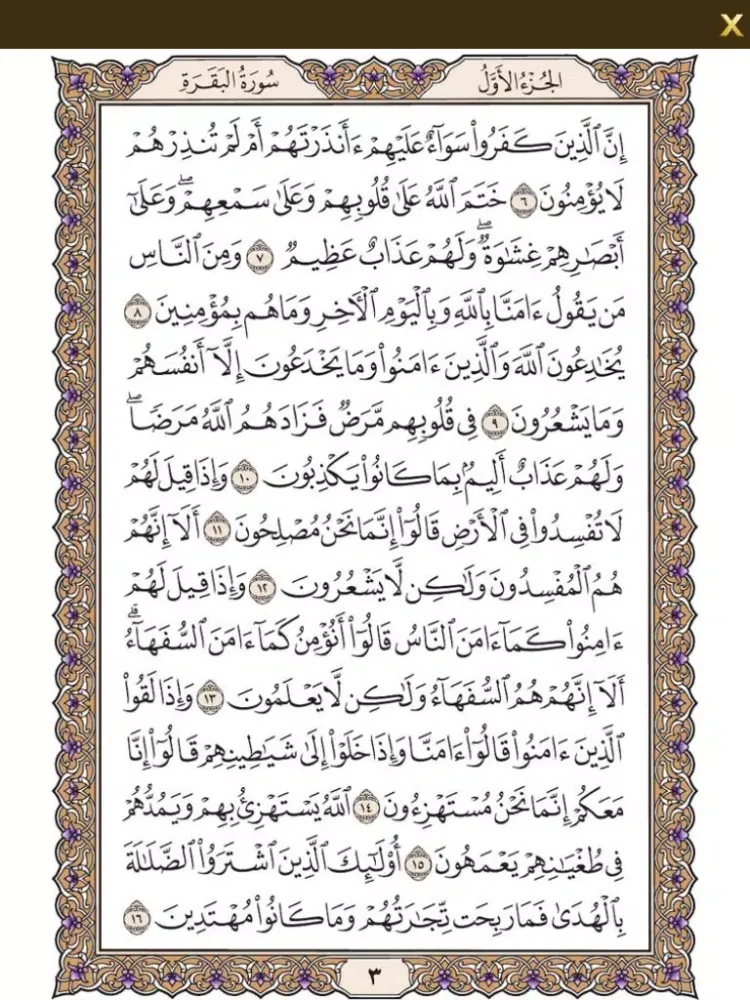 X
الجُزْءُ الأَوَّلُ
سُورَةُ البَقَرَةِ
إِنَّ ٱلَّذِينَ كَفَرُوا۟ سَوَآءٌ عَلَيْهِمْ ءَأَنذَرْتَهُمْ أَمْ لَمْ تُنذِرْهُمْ
لَا يُؤْمِنُونَ ٦ خَتَمَ ٱللَّهُ عَلَىٰ قُلُوبِهِمْ وَعَلَىٰ سَمْعِهِمْ ۖ وَعَلَىٰٓ
أَبْصَٰرِهِمْ غِشَٰوَةٌ ۖ وَلَهُمْ عَذَابٌ عَظِيمٌ ٧ وَمِنَ ٱلنَّاسِ
مَن يَقُولُ ءَامَنَّا بِٱللَّهِ وَبِٱلْيَوْمِ ٱلْـَٔاخِرِ وَمَا هُم بِمُؤْمِنِينَ ٨
يُخَٰدِعُونَ ٱللَّهَ وَٱلَّذِينَ ءَامَنُوا۟ وَمَا يَخْدَعُونَ إِلَّآ أَنفُسَهُمْ
وَمَا يَشْعُرُونَ ٩ فِى قُلُوبِهِم مَّرَضٌ فَزَادَهُمُ ٱللَّهُ مَرَضًا ۖ
وَلَهُمْ عَذَابٌ أَلِيمٌۢ بِمَا كَانُوا۟ يَكْذِبُونَ ١٠ وَإِذَا قِيلَ لَهُمْ
لَا تُفْسِدُوا۟ فِى ٱلْأَرْضِ قَالُوٓا۟ إِنَّمَا نَحْنُ مُصْلِحُونَ ١١ أَلَآ إِنَّهُمْ
هُمُ ٱلْمُفْسِدُونَ وَلَٰكِن لَّا يَشْعُرُونَ ١٢ وَإِذَا قِيلَ لَهُمْ
ءَامِنُوا۟ كَمَآ ءَامَنَ ٱلنَّاسُ قَالُوٓا۟ أَنُؤْمِنُ كَمَآ ءَامَنَ ٱلسُّفَهَآءُ ۗ
أَلَآ إِنَّهُمْ هُمُ ٱلسُّفَهَآءُ وَلَٰكِن لَّا يَعْلَمُونَ ١٣ وَإِذَا لَقُوا۟
ٱلَّذِينَ ءَامَنُوا۟ قَالُوٓا۟ ءَامَنَّا وَإِذَا خَلَوْا۟ إِلَىٰ شَيَٰطِينِهِمْ قَالُوٓا۟ إِنَّا
مَعَكُمْ إِنَّمَا نَحْنُ مُسْتَهْزِءُونَ ١٤ ٱللَّهُ يَسْتَهْزِئُ بِهِمْ وَيَمُدُّهُمْ
فِى طُغْيَٰنِهِمْ يَعْمَهُونَ ١٥ أُو۟لَٰٓئِكَ ٱلَّذِينَ ٱشْتَرَوُا۟ ٱلضَّلَٰلَةَ
بِٱلْهُدَىٰ فَمَا رَبِحَت تِّجَٰرَتُهُمْ وَمَا كَانُوا۟ مُهْتَدِينَ ١٦
٣